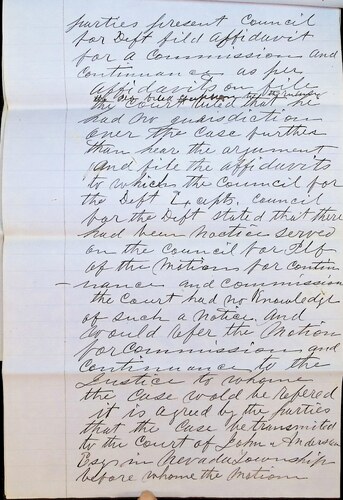 parties present Council
for Deft fild Affidavit
for a Commission and
Continuance as per
affidavits on file
the Court stated that he
had no guarsdiction
over the case further
than hear the argument
and file the affidavits
to which the Council for
the Deft Excepts. Council
for the Deft stated that there
had been noctice served
on the Council for Plf
of the Motions for contin
- nance and commission
the Court had no Knowledge
of such a notice and
would refer the Motion
for Commission and
Continuance to the
Justice to whome
the case wold be refered
it is agred by the parties
that the case be transmited
to the Court of John Anderson
Esqr in Nevada Township
before whome the Motion